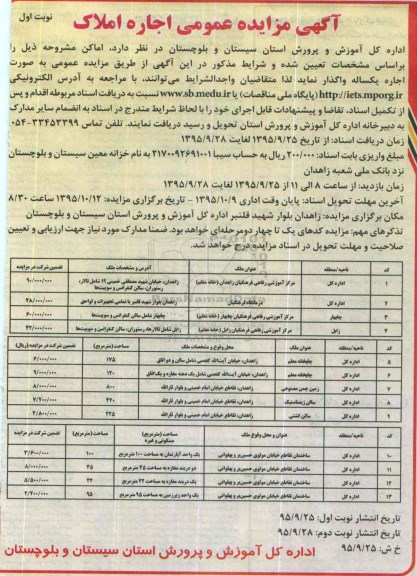 نوبت اول
آگهی مزایده عمومی اجاره املاک
اداره کل آموزش و پرورش استان سیستان و بلوچستان در نظر دارد، اماکن مشروحه ذیل را
براساس مشخصات تعیین شده و شرایط مذکور در این آگهی از طریق مزایده عمومی به صورت
اجاره یکساله واگذار نماید لذا متقاضیان واجدالشرایط می‌توانند، با مراجعه به آدرس الکترونیکی
http://iets.mporg.ir (پایگاه ملی مناقصات) یا www.sb.medu.ir نسبت به دریافت اسناد مربوطه اقدام و پس
از تکمیل اسناد، تقاضا و پیشنهادات قابل اجرای خود را با لحاظ شرایط مندرج در اسناد به انضمام سایر مدارک
به دبیرخانه اداره کل آموزش و پرورش استان تحویل و رسید دریافت نمایند. تلفن تماس ۳۳۴۵۳۳۹۹-۰۵۴
زمان دریافت اسناد: از تاریخ ۱۳۹۵/۹/۲۵ لغایت ۱۳۹۵/۹/۲۸
مبلغ واریزی بابت اسناد: ۲۰۰/۰۰۰ ریال به حساب سیبا ۲۱۷۰۰۹۲۶۹۱۰۰۱ به نام خزانه معین سیستان و بلوچستان
نزد بانک ملی شعبه زاهدان
زمان بازدید: از ساعت ۸ الی ۱۱ از ۱۳۹۵/۹/۲۵ لغایت ۱۳۹۵/۹/۲۸
آخرین مهلت تحویل اسناد: پایان وقت اداری ۱۳۹۵/۱۰/۹ - تاریخ برگزاری مزایده: ۱۳۹۵/۱۰/۱۲ ساعت ۸/۳۰
مکان برگزاری مزایده: زاهدان بلوار شهید قلنبر اداره کل آموزش و پرورش استان سیستان و بلوچستان
تذکرهای مهم: مزایده کدهای یک تا چهار دومرحله‌ای خواهد بود. ضمنا مدارک مورد نیاز جهت ارزیابی و تعیین
صلاحیت و مهلت تحویل در اسناد مزایده درج خواهد شد.
کد ناحیه/منطقه عنوان ملک آدرس و مشخصات ملک تضمین شرکت در مزایده
۱ اداره کل مرکز آموزشی رفاهی فرهنگیان زاهدان (خانه معلم) زاهدان، خیابان شهید مصطفی خمینی ۲۹ شامل تالار، رستوران، سالن کنفرانس و سوییت‌ها ۹۰/۰۰۰/۰۰۰
۲ اداره کل درمانگاه فرهنگیان زاهدان بلوار شهید قلنبر با تمامی تجهیزات و لواحق ۴۸/۰۰۰/۰۰۰
۳ چابهار مرکز آموزشی رفاهی فرهنگیان چابهار (خانه معلم) چابهار شامل سالن کنفرانس و سوییت‌ها ۶۰/۰۰۰/۰۰۰
۴ زابل مرکز آموزشی رفاهی فرهنگیان زابل (خانه معلم) زابل شامل تالارها، رستوران، سالن کنفرانس و سوییت‌ها ۴۲/۰۰۰/۰۰۰
کد ناحیه/منطقه عنوان ملک محل وقوع و مشخصات ملک مساحت (مترمربع) تضمین شرکت در مزایده (ریال)
۵ اداره کل چاپخانه معلم زاهدان، خیابان آیت‌الله کفعمی شامل سالن و دو اتاق ۱۷۵ ۶/۰۰۰/۰۰۰
۶ اداره کل چاپخانه معلم زاهدان، خیابان آیت‌الله کفعمی شامل یک دهنه مغازه و یک اتاق ۱۲۰ ۹/۰۰۰/۰۰۰
۷ اداره کل زمین چمن مصنوعی زاهدان، تقاطع خیابان امام خمینی و بلوار ثارالله ۸۰۰ ۸/۰۰۰/۰۰۰
۸ اداره کل سالن ژیمناستیک زاهدان، تقاطع خیابان امام خمینی و بلوار ثارالله ۴۲۰ ۷/۲۰۰/۰۰۰
۹ اداره کل سالن کشتی زاهدان، تقاطع خیابان امام خمینی و بلوار ثارالله ۲۲۵ ۴/۸۰۰/۰۰۰
کد ناحیه/منطقه عنوان و محل وقوع ملک مساحت (مترمربع) مسکونی و غیره مساحت (مترمربع) تضمین شرکت در مزایده
۱۰ اداره کل ساختمان تقاطع خیابان مولوی حسین‌بر و پهلوانی یک واحد آپارتمان به مساحت ۱۰۰ مترمربع ۱۰۰ ۳/۶۰۰/۰۰۰
۱۱ اداره کل ساختمان تقاطع خیابان مولوی حسین‌بر و پهلوانی دو دربند مغازه به مساحت ۴۵ مترمربع ۴۵ ۸/۰۰۰/۰۰۰
۱۲ اداره کل ساختمان تقاطع خیابان مولوی حسین‌بر و پهلوانی یک دربند مغازه به مساحت ۲۲ مترمربع ۲۲ ۵/۵۰۰/۰۰۰
۱۳ اداره کل ساختمان تقاطع خیابان مولوی حسین‌بر و پهلوانی یک واحد زیرزمین به مساحت ۹۵ مترمربع ۹۵ ۲/۴۰۰/۰۰۰
تاریخ انتشار نوبت اول: ۹۵/۹/۲۵
تاریخ انتشار نوبت دوم: ۹۵/۹/۲۸
خ ش: ۹۵/۹/۲۵
اداره کل آموزش و پرورش استان سیستان و بلوچستان